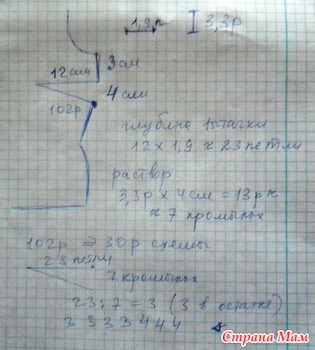 1,9п 3,3р
12 см 3 см
4 см
102р
глубина вытачки
12 х 1,9 ≈ 23 петли
раствор
3,3р х 4 см = 13р ≈
≈ 7 кромочных
102р ⇒ 30р схемы
23 петли
7 кромочных
23 : 7 = 3 (3 в остатке)
3 3 3 3 4 4 4
Страна Мам